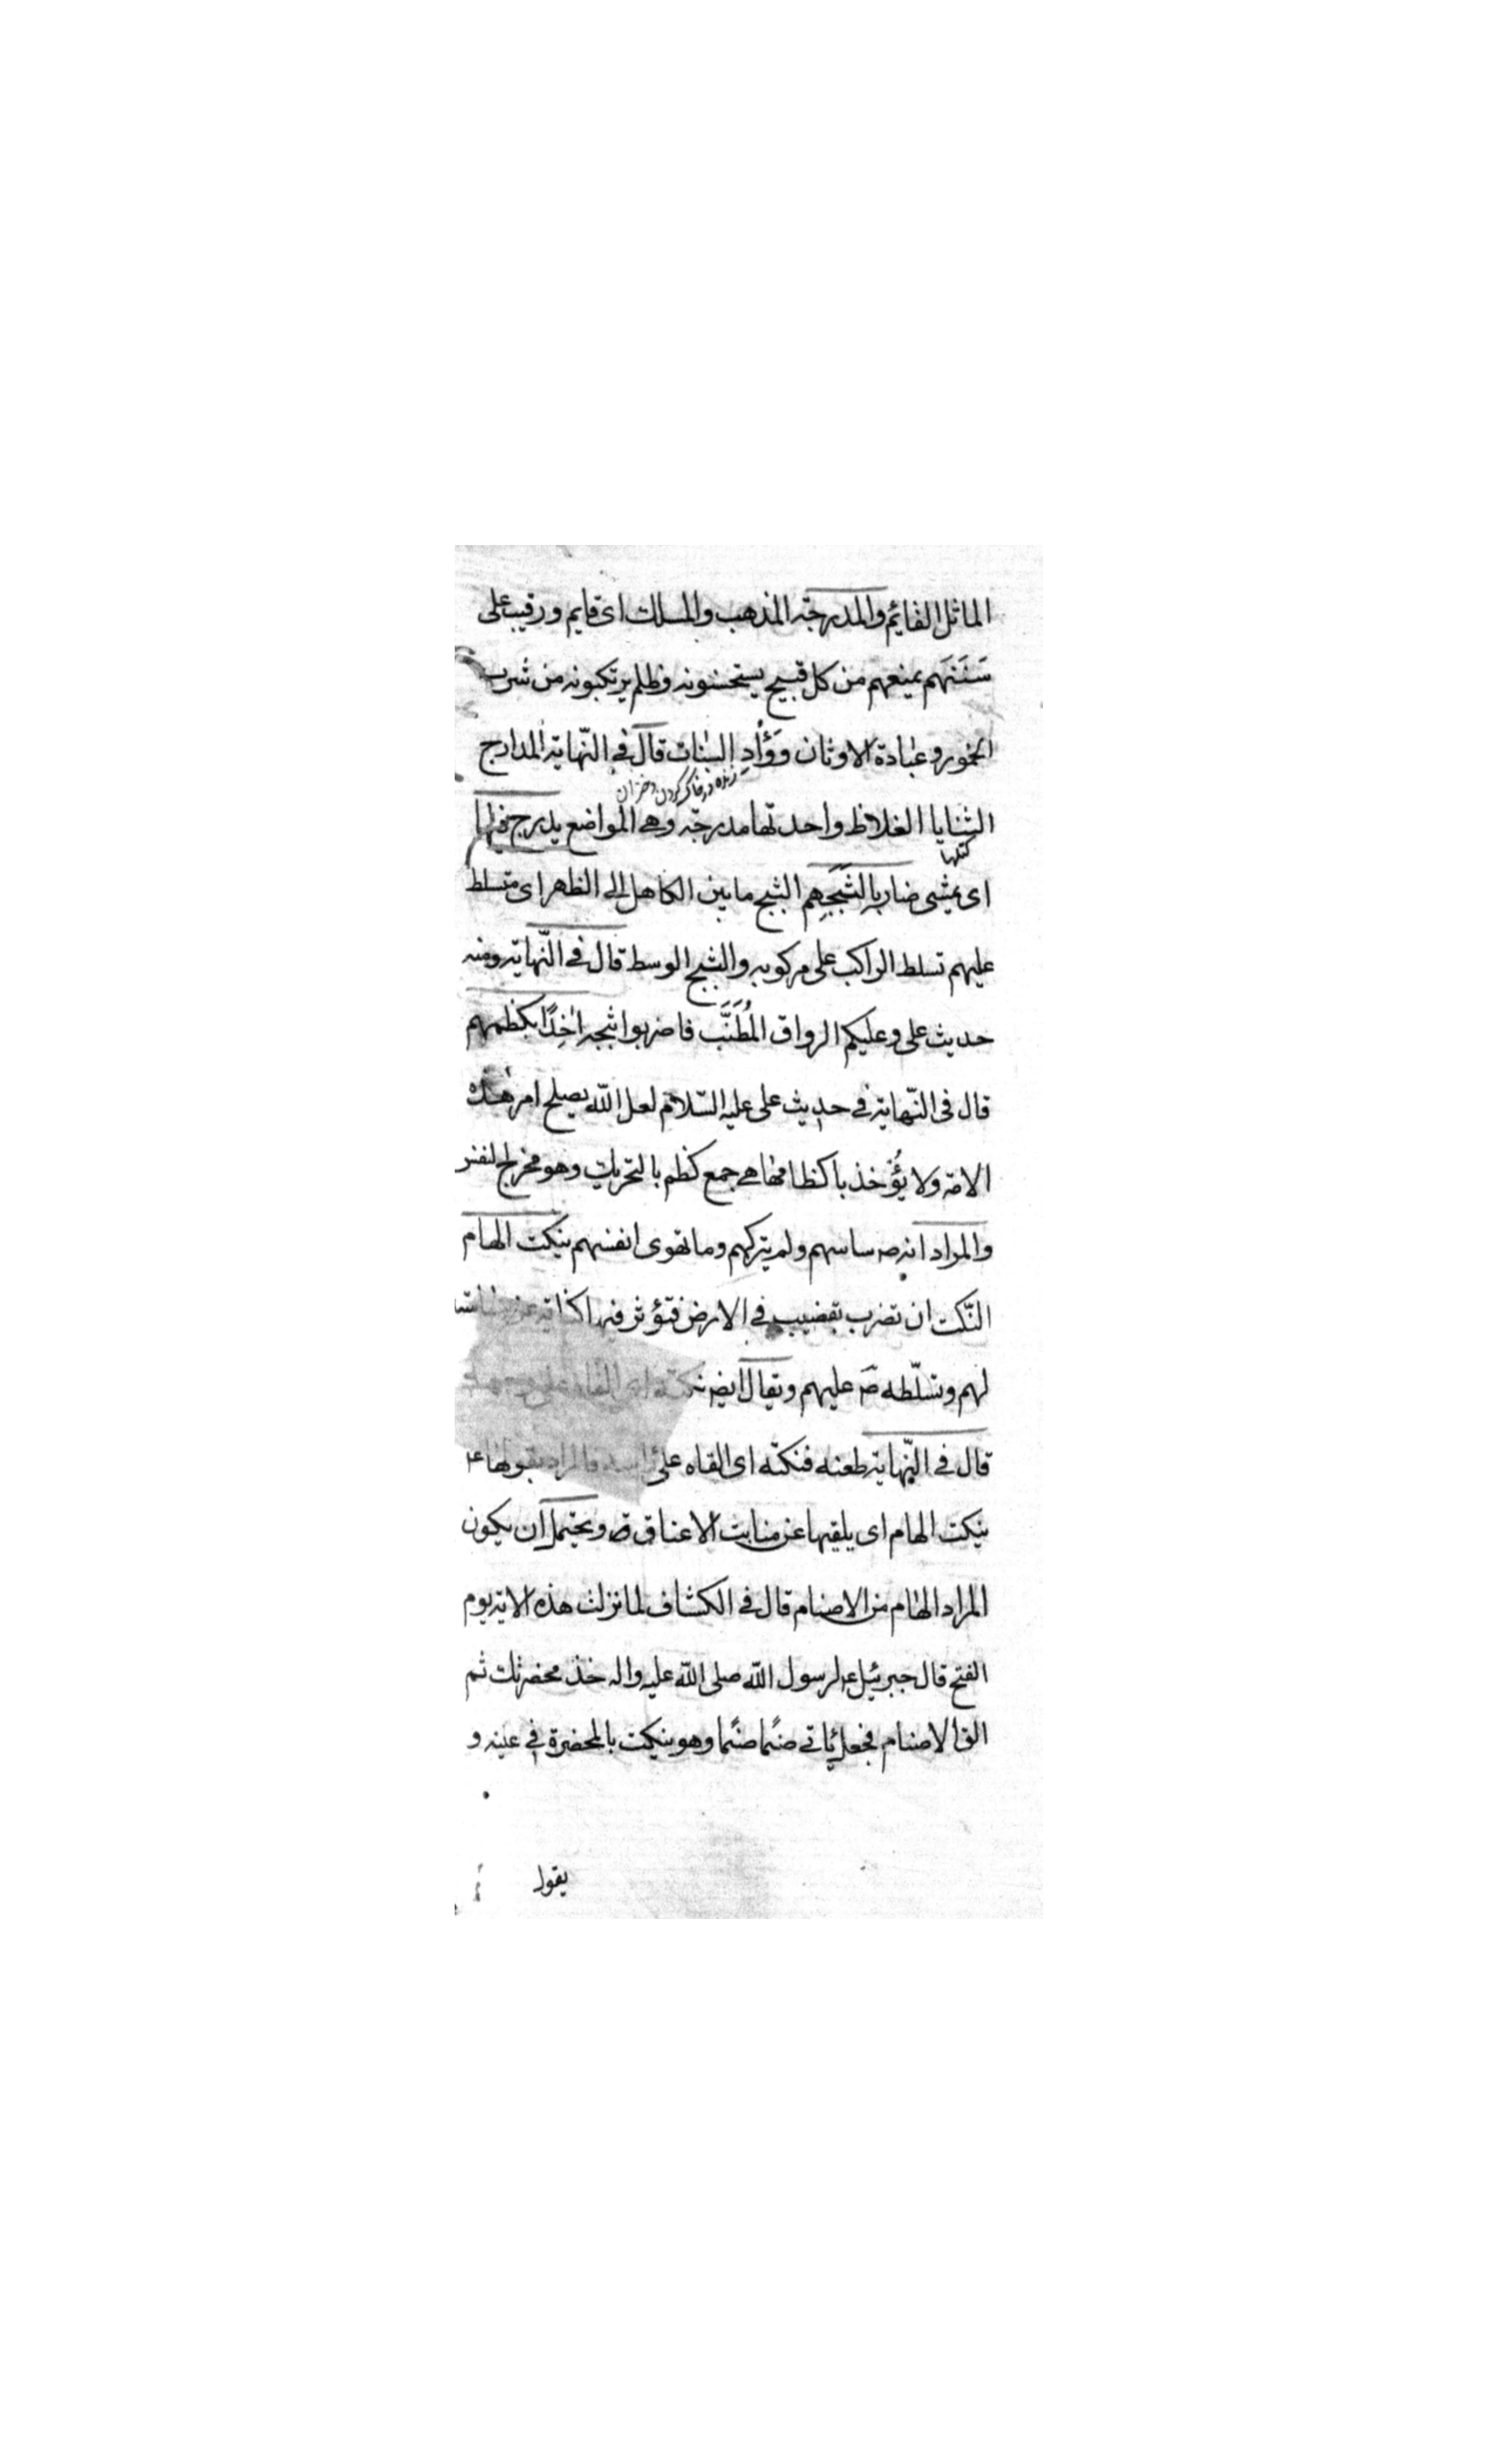 الماثل القائم والمدرجة المذهب والمسلك اى قايم ورقيب على
سَنَنِهَم يمنعهم من كل قبيح يستحسنونه وظلم يرتكبونه من شرب
الخمور وعبادة الاوثان ووَأْدِ البنات قال فى النّهاية المدارج
زنده در خاك كردن دختران
الثنايا الغلاظ واحدتها مدرجة وهى المواضع يدرج فيها
اى يمشى ضاربا لثَبَجِهِم الثبج ما بين الكاهل الى الظهر اى متسلط
عليهم تسلط الراكب على مركوبه والثبج الوسط قال فى النّهاية ومنه
حديث على وعليكم الرواق المُطَنَّب فاضربوا ثبجه اٰخِذًا بكظمهم
قال فى النّهاية فى حديث على عليه السّلام لعل اللّه يصلح امر هذه
الامة ولا يُؤخذ باكظامها هى جمع كظم بالتحريك وهو مخرج النفس
والمراد انه ص ساسهم ولم يتركهم وما تهوى انفسهم ينكت الهام
النّكت ان تضرب بقضيب فى الارض فتؤثر فيها
لهم وتسلّطه ص عليهم ويقال ايض
قال فى النّهاية طعنه فنكته اى القاه على راسه فالمراد بقولها ع
ينكت الهام اى يلقيها عن منابت الاعناق ق ويحتمل ان يكون
المراد الهام من الاصنام قال فى الكشاف لما نزلت هذه الاية يوم
الفتح قال جبرئيل ع لرسول اللّه صلى اللّه عليه واله خذ مخصرتك ثم
الق الاصنام فجعل ياتى صنمًا صنمًا وهو ينكت بالمخصرة فى عينه و
يقول